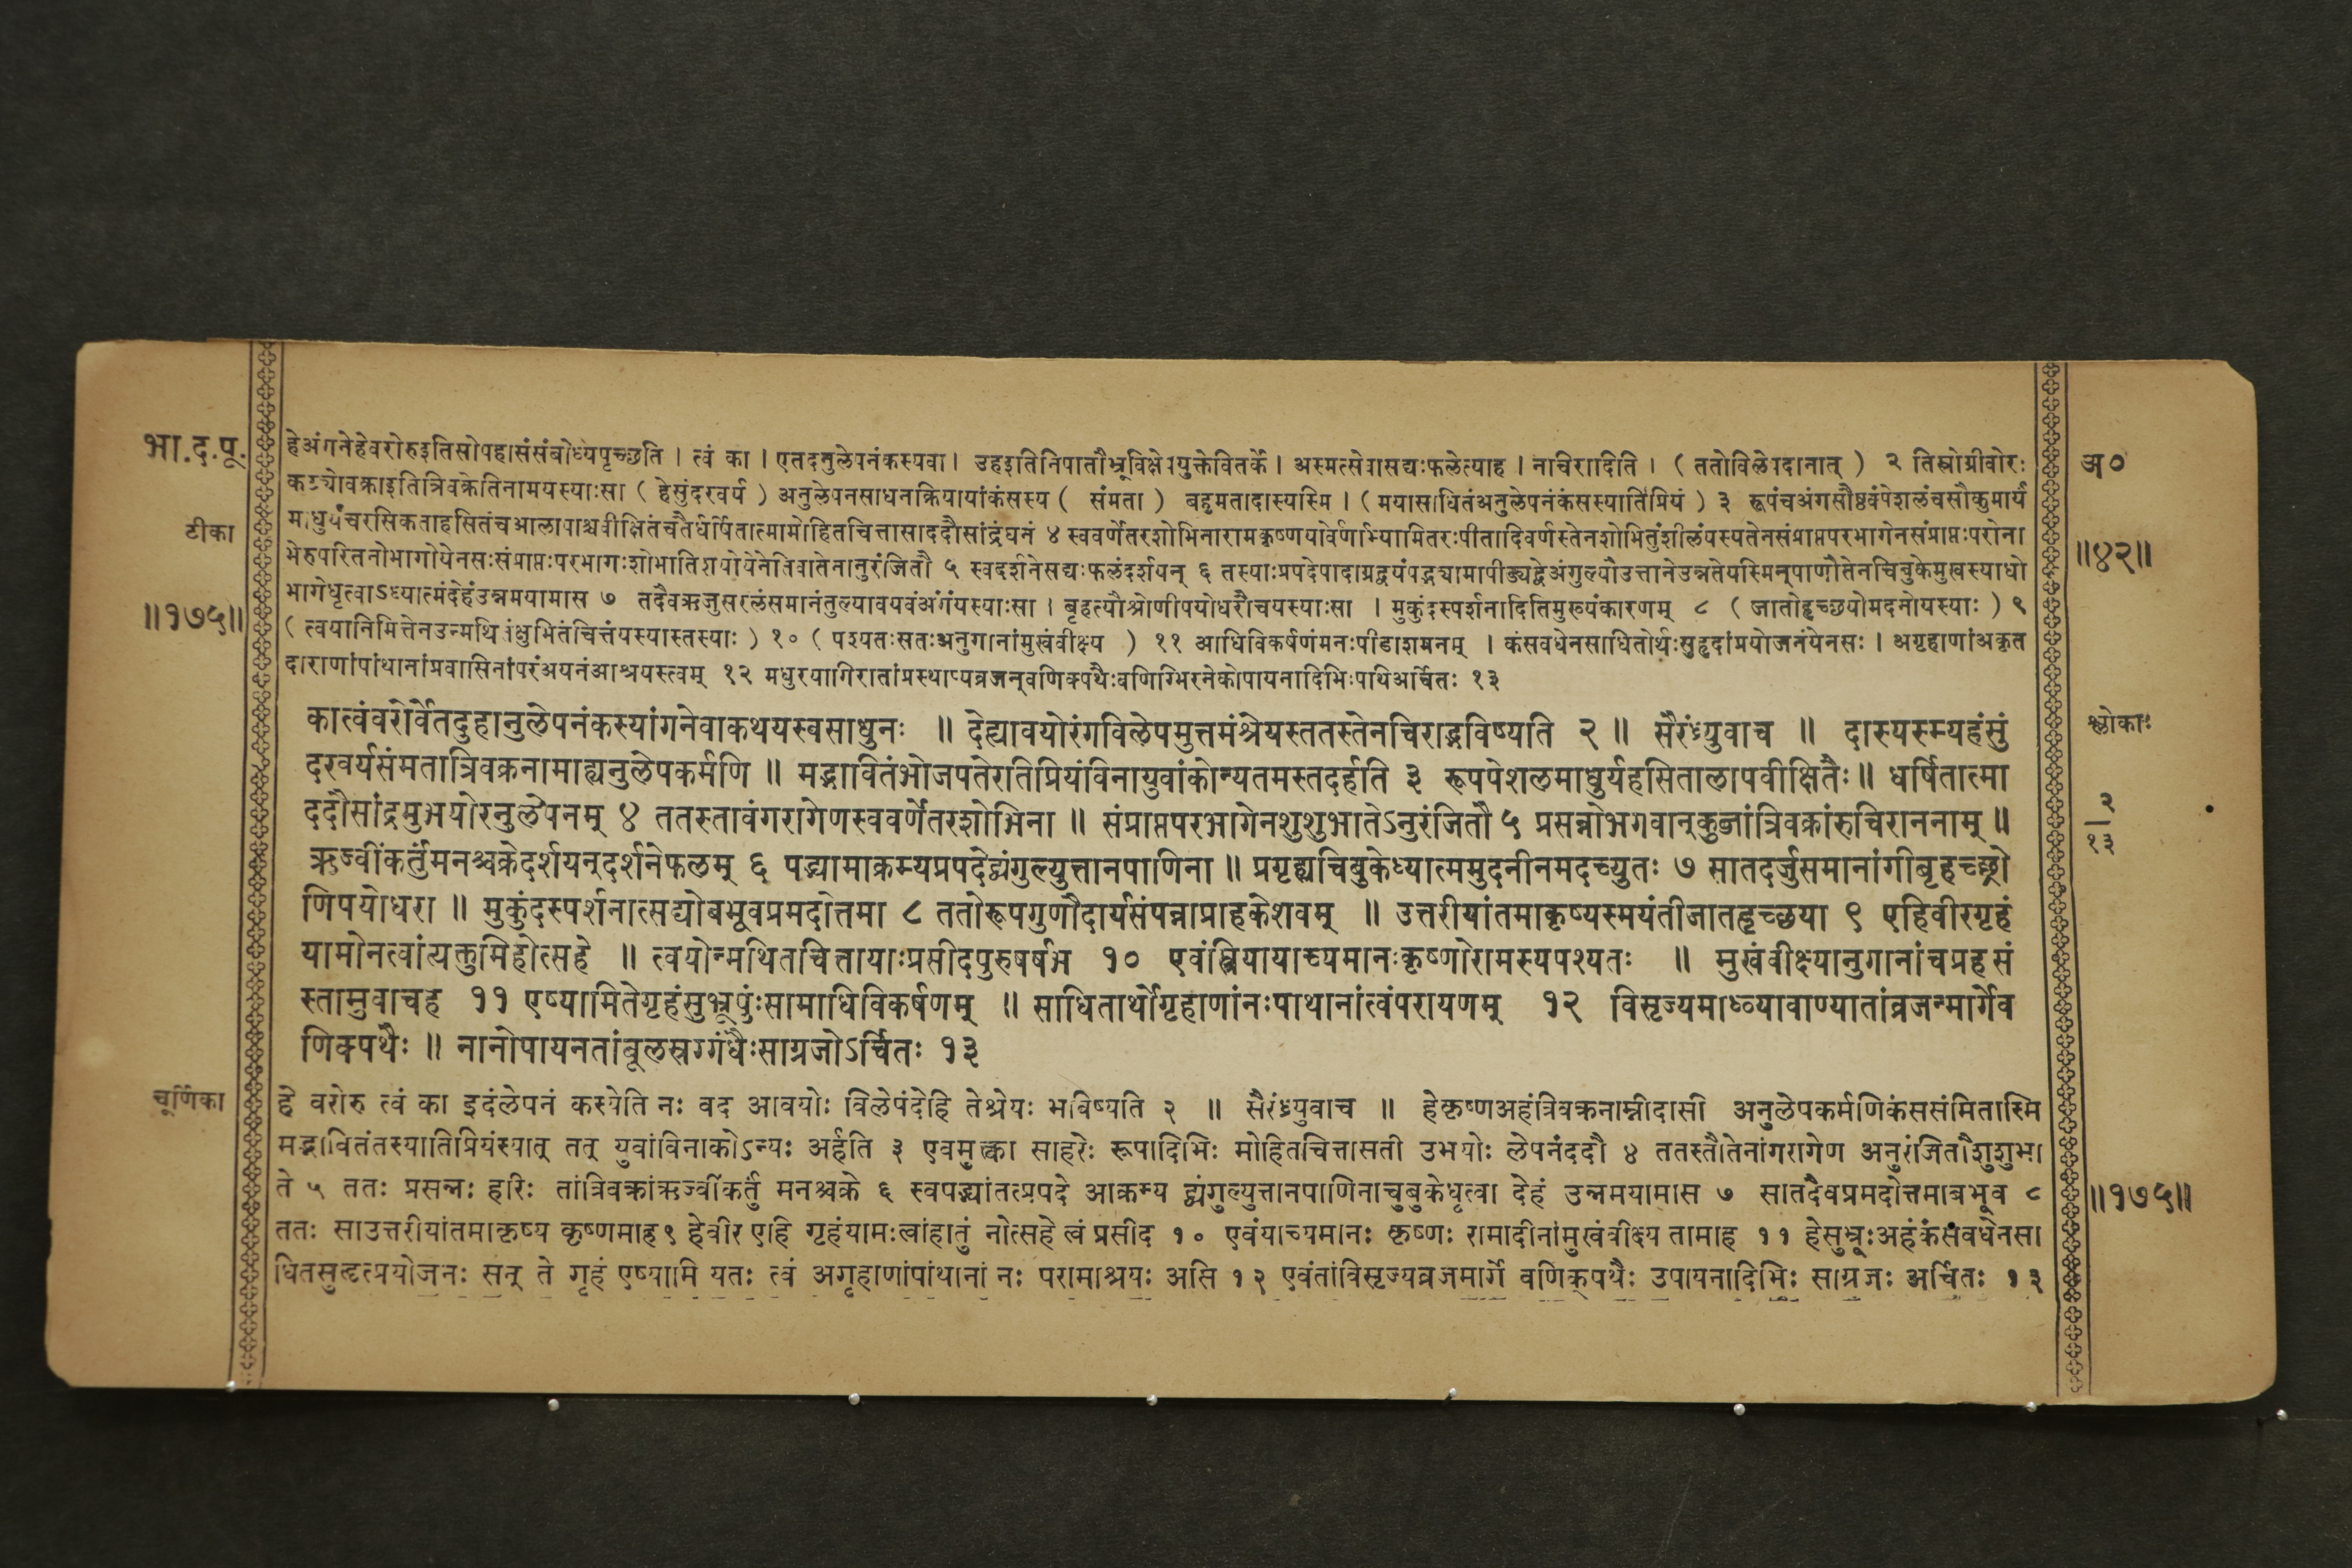 भा.द.पू.
टीका
॥१७५॥
हेअंगनेहेवरोरुइतिसोपहासंसंबोध्यपृच्छति । त्वं का । एतदनुलेपनंकस्यवा । उहइतिनिपातौभ्रूविक्षेपयुक्तेवितर्के । अस्मत्सेवासद्यःफलेत्याह । नाचिरादिति । ( ततोविलेपदानात् ) २ तिस्रोग्रीवोरः
कट्योवक्राइतित्रिवक्रेतिनामयस्याःसा ( हेसुंदरवर्य ) अनुलेपनसाधनक्रियायांकंसस्य ( संमता ) बहुमतादास्यस्मि । ( मयासाधितंअनुलेपनंकंसस्यातिप्रियं ) ३ रूपंचअंगसौष्ठवंपेशलंचसौकुमार्यं
माधुर्यंचरसिकताहसितंचआलापाश्चवीक्षितंचतैर्धर्षितात्मामोहितचित्तासाददौसांद्रंघनं ४ स्ववर्णेतरशोभिनारामकृष्णयोर्वर्णाभ्यामितरःपीतादिवर्णस्तेनशोभितुंशीलंयस्यतेनसंप्राप्तपरभागेनसंप्राप्तःपरोना
भेरुपरितनोभागोयेनसःसंप्राप्तःपरभागःशोभातिशयोयेनेतिवातेनानुरंजितौ ५ स्वदर्शनेसद्यःफलंदर्शयन् ६ तस्याःप्रपदेपादाग्रद्वयंपद्भ्यामापीड्यद्वेअंगुल्यौउत्तानेउन्नतेयस्मिन्पाणौतेनचिबुकेमुखस्याधो
भागेधृत्वाऽध्यात्मंदेहंउन्नमयामास ७ तदैवऋजुसरलंसमानंतुल्यावयवंअंगंयस्याःसा । बृहत्यौश्रोणीपयोधरौचयस्याःसा । मुकुंदस्पर्शनादितिमुख्यंकारणम् ८ ( जातोहृच्छयोमदनोयस्याः ) ९
( त्वयानिमित्तेनउन्मथितंक्षुभितंचित्तंयस्यास्तस्याः ) १० ( पश्यतःसतःअनुगानांमुखंवीक्ष्य ) ११ आधिविकर्षणंमनःपीडाशमनम् । कंसवधेनसाधितोर्थःसुहृदांप्रयोजनंयेनसः । अगृहाणांअकृत
दाराणांपांथानांप्रवासिनांपरंअयनंआश्रयस्त्वम् १२ मधुरयागिरातांप्रस्थाप्यव्रजन्वणिक्पथैःवणिग्भिरनेकोपायनादिभिःपथिअर्चितः १३
कात्वंवरोर्वेतदुहानुलेपनंकस्यांगनेवाकथयस्वसाधुनः ॥ देह्यावयोरंगविलेपमुत्तमंश्रेयस्ततस्तेनचिराद्भविष्यति २ ॥ सैरंध्र्युवाच ॥ दास्यस्म्यहंसुं
दरवर्यसंमतात्रिवक्रनामाह्यनुलेपकर्मणि ॥ मद्भावितंभोजपतेरतिप्रियंविनायुवांकोन्यतमस्तदर्हति ३ रूपपेशलमाधुर्यहसितालापवीक्षितैः ॥ धर्षितात्मा
ददौसांद्रमुभयोरनुलेपनम् ४ ततस्तावंगरागेणस्ववर्णेतरशोभिना ॥ संप्राप्तपरभागेनशुशुभातेऽनुरंजितौ ५ प्रसन्नोभगवान्कुब्जांत्रिवक्रांरुचिराननाम् ॥
ऋज्वींकर्तुंमनश्चक्रेदर्शयन्दर्शनेफलम् ६ पद्भ्यामाक्रम्यप्रपदेद्व्यंगुल्युत्तानपाणिना ॥ प्रगृह्यचिबुकेध्यात्ममुदनीनमदच्युतः ७ सातदर्जुसमानांगीबृहच्छ्रो
णिपयोधरा ॥ मुकुंदस्पर्शनात्सद्योबभूवप्रमदोत्तमा ८ ततोरूपगुणौदार्यसंपन्नाप्राहकेशवम् ॥ उत्तरीयांतमाकृष्यस्मयंतीजातहृच्छया ९ एहिवीरगृहं
यामोनत्वांत्यक्तुमिहोत्सहे ॥ त्वयोन्मथितचित्तायाःप्रसीदपुरुषर्षभ १० एवंस्त्रियायाच्यमानःकृष्णोरामस्यपश्यतः ॥ मुखंवीक्ष्यानुगानांचप्रहसं
स्तामुवाचह ११ एष्यामितेगृहंसुभ्रूपुंःसामाधिविकर्षणम् ॥ साधितार्थोगृहाणांनःपाथानांत्वंपरायणम् १२ विसृज्यमाध्व्यावाण्यातांव्रजन्मार्गेव
णिक्पथैः ॥ नानोपायनतांबूलस्रग्गंधैःसाग्रजोऽर्चितः १३
चूर्णिका
हे वरोरु त्वं का इदंलेपनं कस्येति नः वद आवयोः विलेपंदेहि तेश्रेयः भविष्यति २ ॥ सैरंध्र्युवाच ॥ हेकृष्णअहंत्रिवक्रनाम्नीदासी अनुलेपकर्मणिकंससंमितास्मि
मद्भावितंतस्यातिप्रियंस्यात् तत् युवांविनाकोऽन्यः अर्हति ३ एवमुत्का साहरेः रूपादिभिः मोहितचित्तासती उभयोः लेपनंददौ ४ ततस्तौतेनांगरागेण अनुरंजितौशुशुभा
ते ५ ततः प्रसन्नः हरिः तांत्रिवक्रांऋज्वींकर्तुं मनश्चक्रे ६ स्वपद्भ्यांतत्प्रपदे आक्रम्य द्व्यंगुल्युत्तानपाणिनाचुबुकेधृत्वा देहं उन्नमयामास ७ सातदैवप्रमदोत्तमाबभूव ८
ततः साउत्तरीयांतमाकृष्य कृष्णमाह ९ हेवीर एहि गृहंयामःत्वांहातुं नोत्सहे त्वं प्रसीद १० एवंयाच्यमानः कृष्णः रामादीनांमुखंवीक्ष्य तामाह ११ हेसुभ्रूःअहंकंसवधेनसा
धितसुहृत्प्रयोजनः सन् ते गृहं एष्यामि यतः त्वं अगृहाणांपांथानां नः परामाश्रयः असि १२ एवंतांविसृज्यव्रजमार्गे वणिक्पथैः उपायनादिभिः साग्रजः अर्चितः १३
अ०
॥४२॥
श्लोकाः
२
१३
॥१७५॥